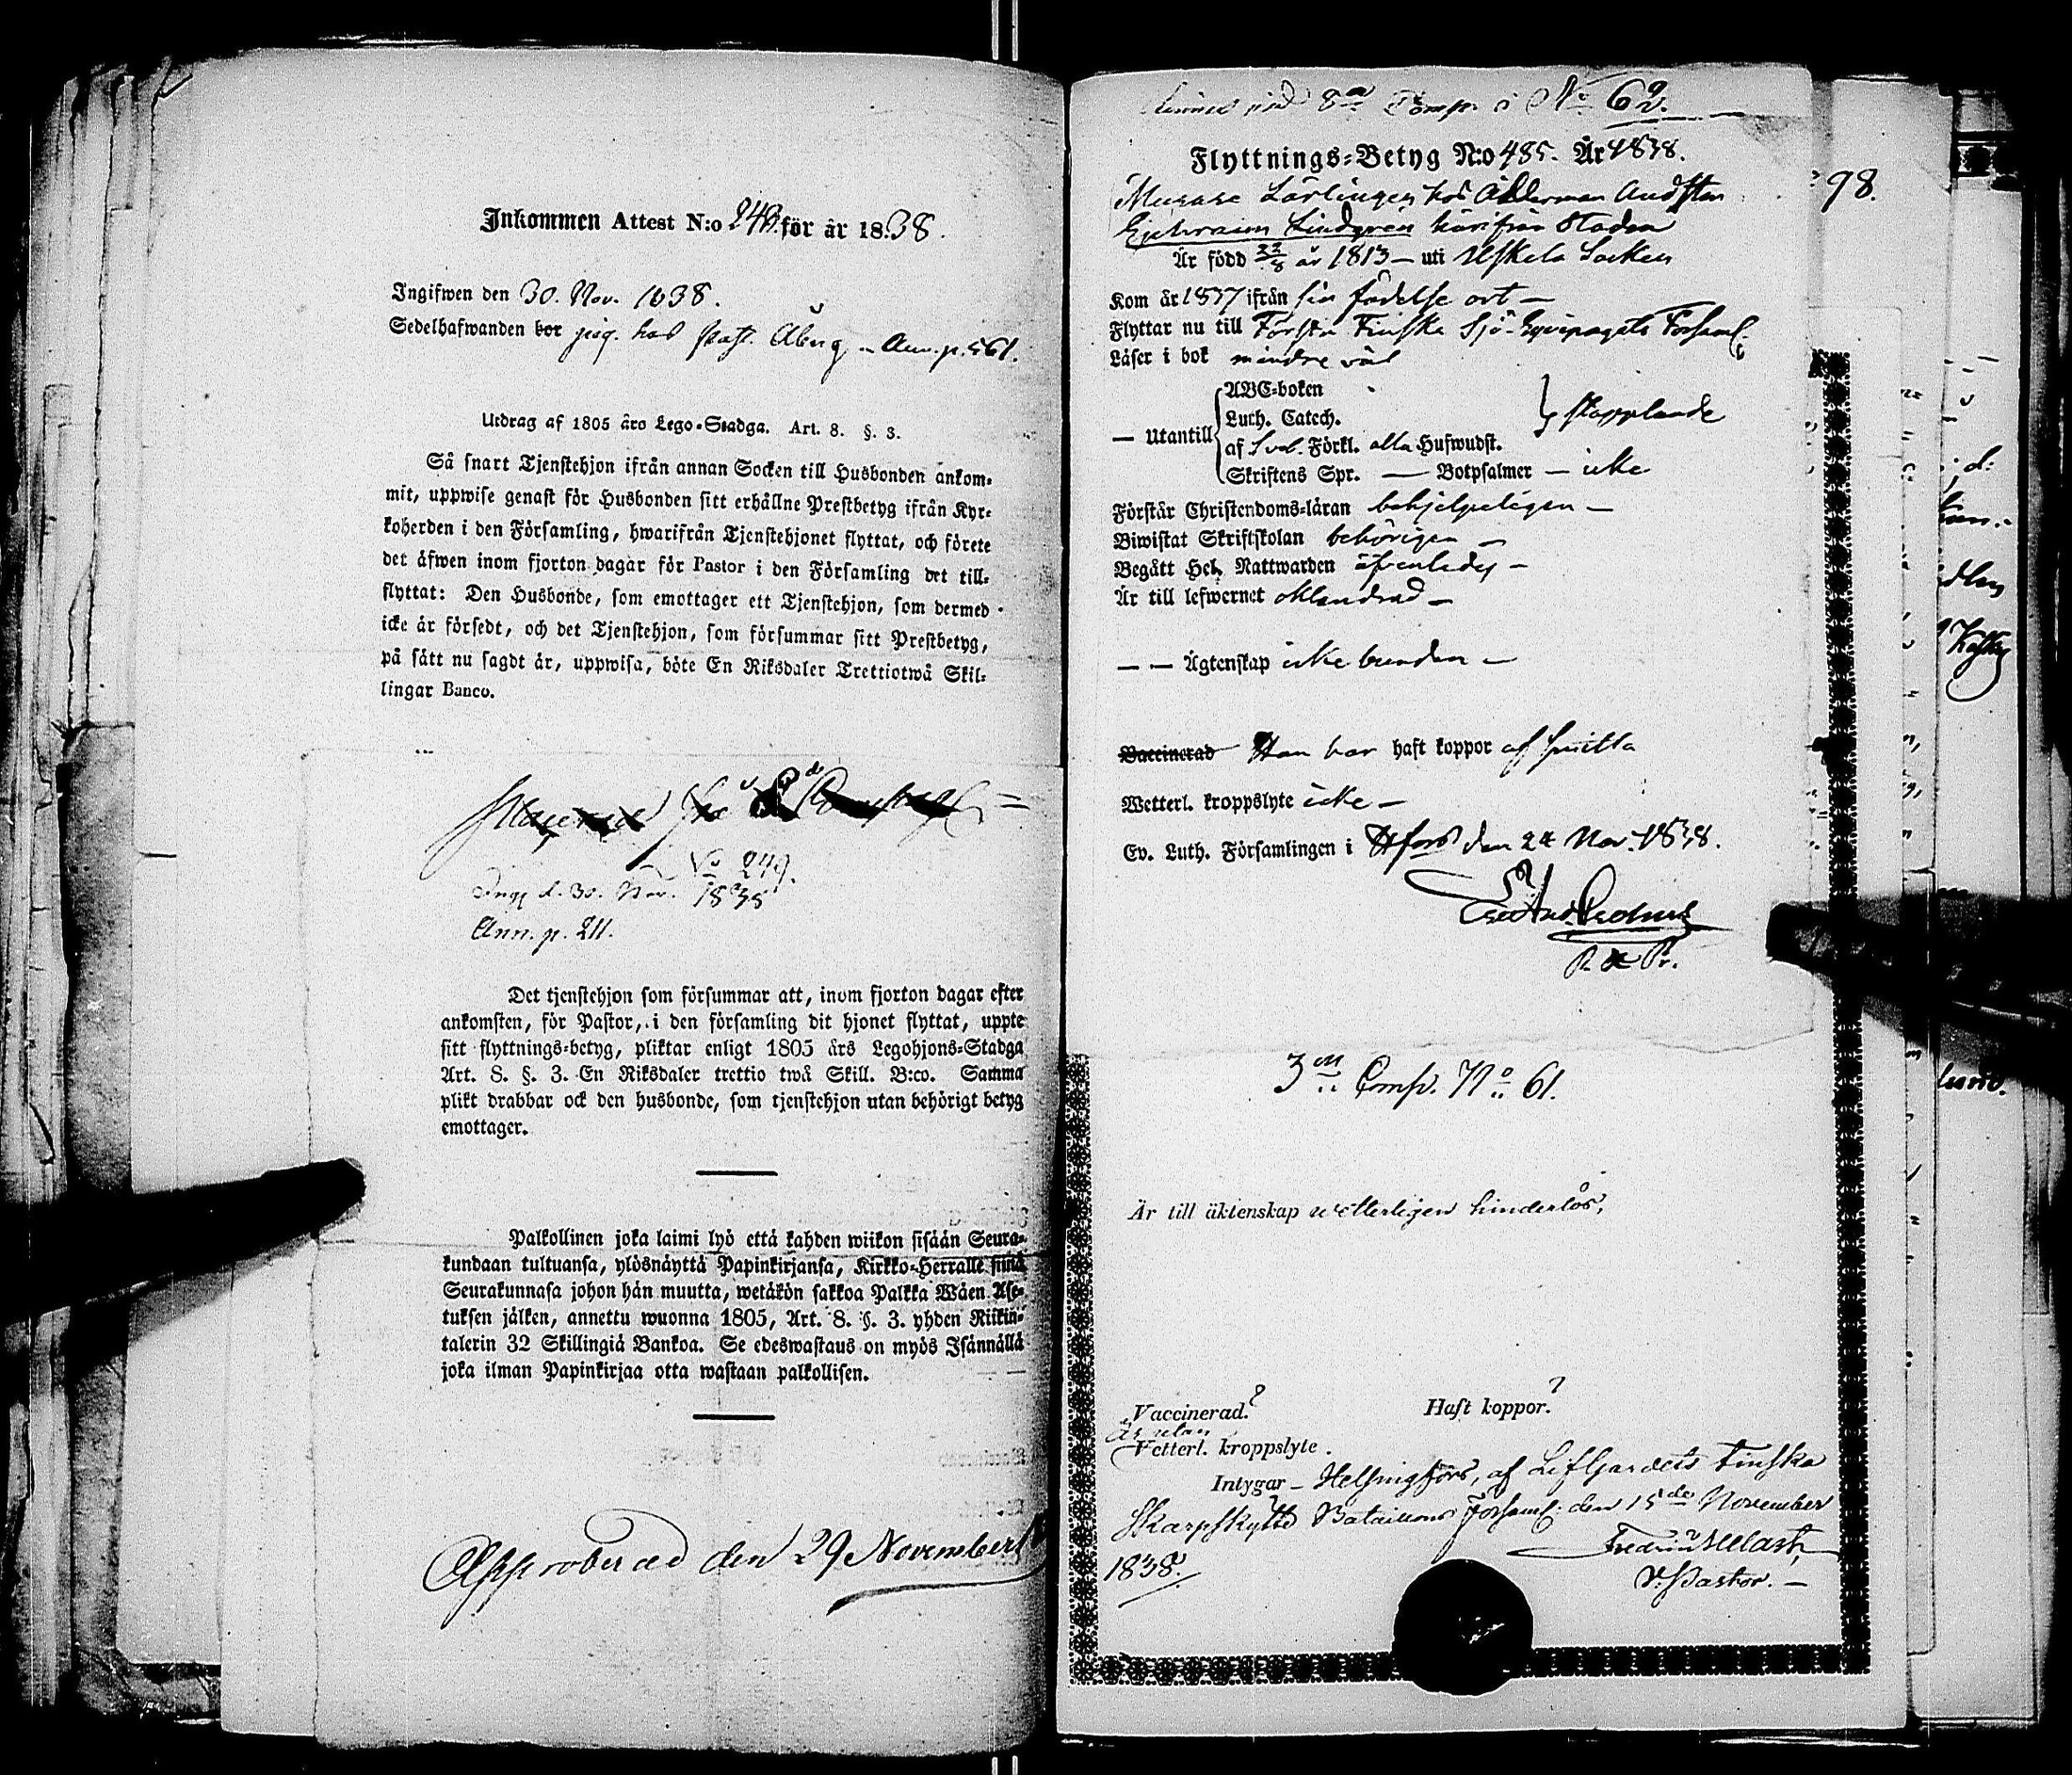 Inkommen Attest N:o 248. för år 1838.
Ingifwen den 30. Nov. 1838.
Sedelhafwanden bor pig. hos Åberg Ann. p. 561.
Utdrag af 1805 års Lego-Stadga. Art. 8. §. 3.
Så snart Tjenstehjon ifrån annan Socken till Husbonden ankom-
mit, uppwise genast för Husbonden sitt erhållne Prestbetyg ifrån Kyr-
koherden i den Församling, hwarifrån Tjenstehjonet flyttat, och förete
det äfwen inom fjorton dagar för Pastor i den Församling det till-
flyttat: Den Husbonde, som emottager ett Tjenstehjon, som dermed
icke är försedt, och det Tjenstehjon, som försummar sitt Prestbetyg,
på sätt nu sagdt är, uppwisa, böte En Riksdaler Trettiotwå Skil-
lingar Banco.
No 249.
Ing. d. 30. Nov. 1838
Ann. p. 211.
Det tjenstehjon som försummar att, inom fjorton dagar efter
ankomsten, för Pastor, i den församling dit hjonet flyttat, uppte
sitt flyttnings-betyg, pliktar enligt 1805 års Legohjons-Stadga
Art. 8. §. 3. En Riksdaler trettio twå Skill. B:co. Samma
plikt drabbar ock den husbonde, som tjenstehjon utan behörigt betyg
emottager.
Palkollinen joka laimi lyö että kahden wiikon sisään Seura-
kundaan tultuansa, ylösnäyttä Papinkirjansa, Kirkko-Herralle siinä
Seurakunnasa johon hän muutta, wetäkön sakkoa Palkka Wäen Ase-
tuksen jälken, annettu wuonna 1805, Art. 8. §. 3. yhden Riikin-
talerin 32 Skillingiä Bankoa. Se edeswastaus on myös Isännällä
joka ilman Papinkirjaa otta wastaan palkollisen.
Approberad den 29 November
8de Comp. i No 62.
Flyttnings-Betyg N:o 485. År 1838.
Murare Lärlingen hos Ålderman Audsten
Ephraim Lindgren härifrån Staden
Är född 22/8 år 1813 — uti Uskela Socken
Kom år 1837 ifrån sin födelse ort —
Flyttar nu till Första Finska Sjö-Equipagets Församl.
Läser i bok mindre väl
— Utantill ABC-boken
Luth. Catech.
af Sveb. Förkl. alla Hufwudst. } stapplande
Skriftens Spr. — Botpsalmer — icke
Förstår Christendoms-läran behjelpeligen —
Biwistat Skriftskolan behörigen —
Begått Hel. Nattwarden äfvenledes —
Är till lefwernet oklandrad —
— — Ägtenskap icke bunden —
Vaccinerad Han har haft koppor af smitta
Wetterl. kroppslyte icke —
Ev. Luth. Församlingen i Hfors den 24 Nov. 1838.
98.
3dn Comp. No 61.
Är till äktenskap vetterligen hinderlös,
Vaccinerad? Haft koppor?
Är utan
Vetterl. kroppslyte.
Intygar – Helsingfors, af LifGardets Finska
Skarpskytte Bataillons Församl: den 15de November
1838.
V. Pastor. —